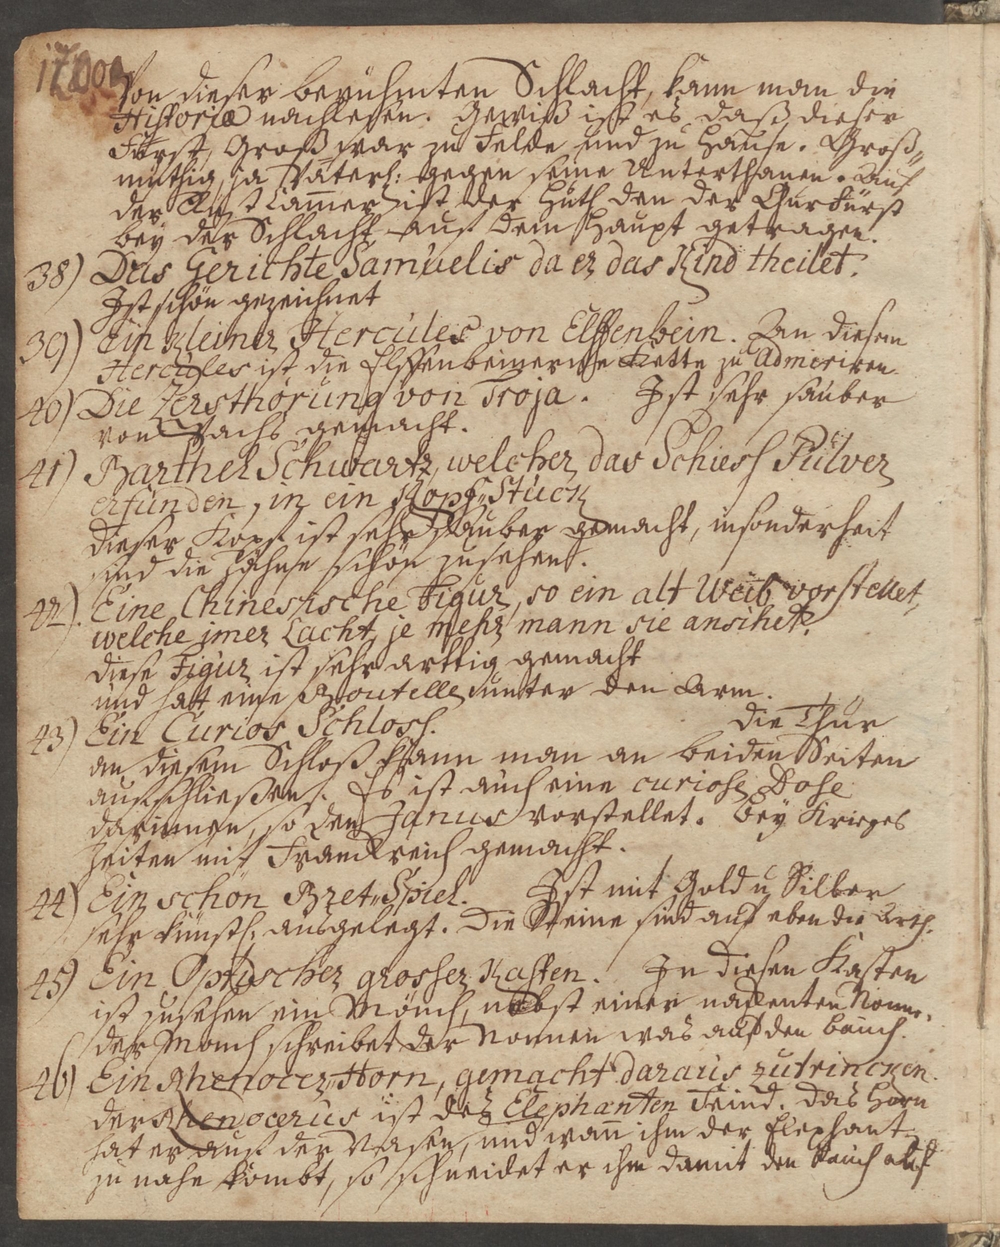 Von dieser berühmten Schlacht, kann man die
Historie nachlesen. Gewiß ist es daß dieser
Fürst, Groß war zu Felde und zu Hause. Groß„
müthig, ja Väterl: gegen seine Unterthanen. Auf
der Kunst Kam̄er ist der Huth den der ChurFürst
bey der Schlacht auf dem Haupt getragen.
38) Das Gerichte Samuelis da er das Kind theilet.
Ist schön gezeichnet
39) Ein kleiner Hercules von Elffenbein. An diesem
Hercules ist die Elffenbeinerne Kette zu Admeriren.
40) Die Zersthörung von Troja. Ist sehr sauber
von Wachs gemacht.
41) Barthel Schwartz, welcher das Schiess Pulver
erfunden, in ein Kopf„Stück
dieser Kopf ist sehr sauber gemacht, insonderheit
sind die Zähne schön zusehen.
42). Eine Chinesische Figur, so ein alt Weib vorstellet,
welche im̄er Lacht, je mehr mann sie ansihet.
diese Figur ist sehr arttig gemacht
und hat eine Bouteille unter den Arm.
43) Ein Curios Schloss. die Thür
an diesem Schloß kann man an beiden Seiten
aufschließen. Es ist auch eine curiose Dose
darinnen, so den Janus vorstellet. bey Krieges
Zeiten mit Franckreich gemacht.
44) Ein schön Bret„Spiel. Ist mit Gold u Silber
sehr künstl: ausgelegt. Die Steine sind auf eben die Arth.
45) Ein Optischer grosser Kasten. In diesen Kasten
ist zusehen ein Mönch, nebst einer nackenten Nonne.
der Mönch schreibet der Nonnen was auf den bauch.
46) Ein Rhenocer„Horn, gemacht daraus zutrincken.
der Rhenocerus ist des Elephanten Feind. das Horn
hat er auf der Nasen, und wan̄ ihm der Elephant
zu nahe kömbt, so schneidet er ihm damit den bauch auf